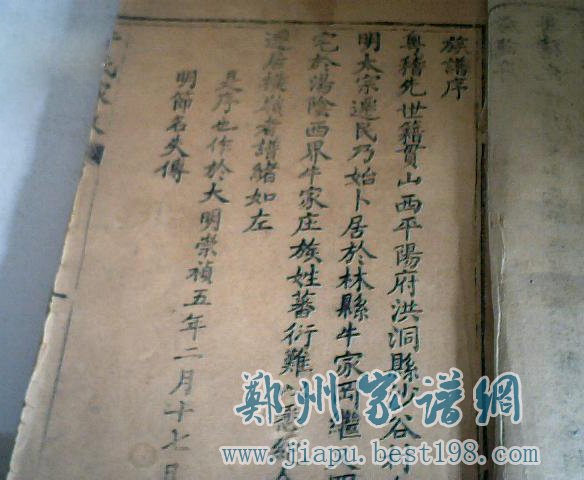 族譜序
粤稽先世籍貫山西平陽府洪洞縣沙谷村
明太宗遷民乃始卜居於林縣牛家岡繼
宅於湯陰西界牛家庄族姓蕃衍難以悉
遷居 者譜緒如左
是序也作於大明崇禎五年二月十七日
明節名失傳
鄭州家譜網
www.jiapu.best198.com